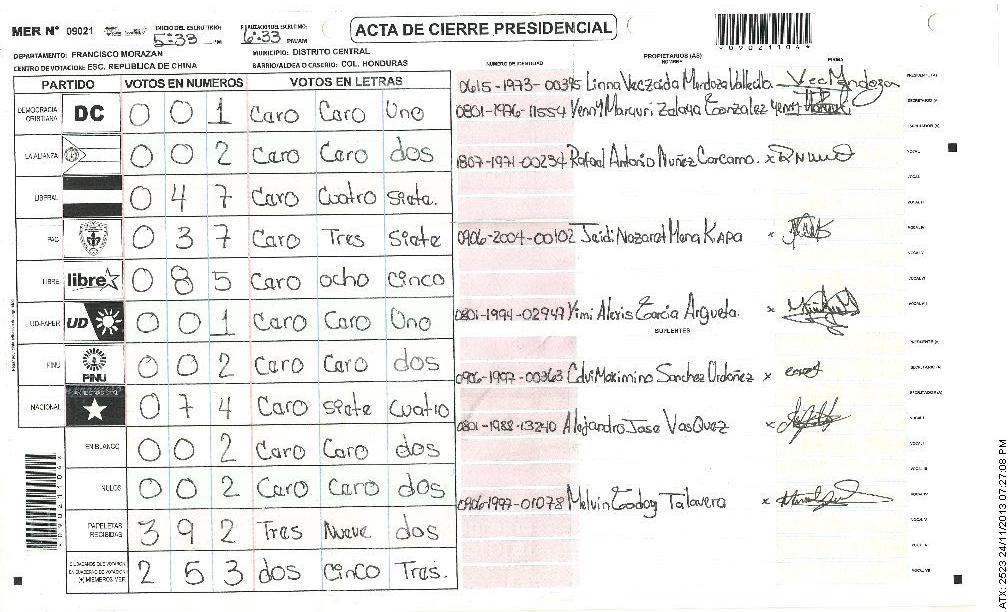 MER Nº 09021 INICIO DEL ESCRUTINIO: 5:33 PM FINALIZACION DEL ESCRUTINIO: 6:33 PM/AM ACTA DE CIERRE PRESIDENCIAL
090211044
DEPARTAMENTO: FRANCISCO MORAZAN MUNICIPIO: DISTRITO CENTRAL
CENTRO DE VOTACION: ESC. REPUBLICA DE CHINA BARRIO/ALDEA O CASERIO: COL. HONDURAS
NUMERO DE IDENTIDAD PROPIETARIOS (AS) NOMBRE FIRMA
PARTIDO VOTOS EN NUMEROS VOTOS EN LETRAS
DEMOCRACIA CRISTIANA DC 0 0 1 Caro Caro Uno
LA ALIANZA 0 0 2 Caro Caro dos
LIBERAL 0 4 7 Caro Cuatro siete.
PAC 0 3 7 Caro Tres siete
LIBRE libre 0 8 5 Caro ocho cinco
UD-FAPER UD 0 0 1 Caro Caro Uno
PINU PINU 0 0 2 Caro Caro dos
NACIONAL 0 7 4 Caro siete cuatro
EN BLANCO 0 0 2 Caro Caro dos
NULOS 0 0 2 Caro Caro dos
PAPELETAS RECIBIDAS 3 9 2 Tres Nueve dos
CIUDADANOS QUE VOTARON EN CUADERNO DE VOTACION (+) MIEMBROS MER 2 5 3 dos cinco Tres.
0615-1973-00395 Linna Mendoza
0801-1996-11554 Yenny Zalaya Gonzalez
1807-1971-00234 Rafael Antonio Nuñez Carcamo. x
0906-2004-00102 x
0801-1994-02947 Yimi Alexis Garcia Argueta. x
SUPLENTES
0906-1997-00363 Maximino Sanchez Ordoñez x
0801-1988-13240 Alejandro Jose VasQuez x
0906-1997-01078 Melvin Godoy Talavera x
ATX: 2523 24/11/2013 07:27:08 PM